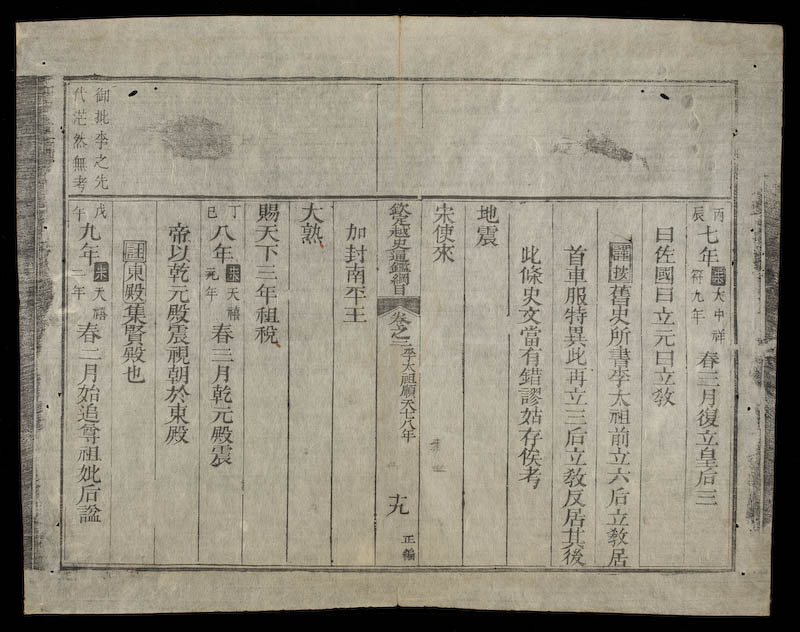 丙辰七年宋大中祥符九年春三月復立皇后三
曰佐國曰立元曰立教
謹按舊史所書李太祖前立六后立教居
首車服特異此再立三后立教反居其後
此條史文當有錯謬姑存俟考
地震
宋使來
欽定越史通鑑綱目 卷之二 李太祖順天七八年 十九 正編
加封南平王
大熟
賜天下三年租稅
丁巳八年宋天禧元年春三月乾元殿震
帝以乾元殿震視朝於東殿
註東殿集賢殿也
戊午九年宋天禧二年春二月始追尊祖妣后謚
御批李之先
代茫然無考